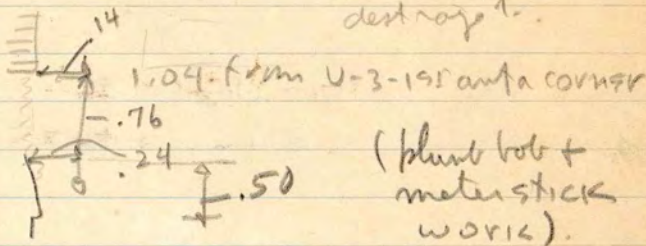 destroyed.
.14
1.04 from U-3-191 anta corner
.76
.24
.50
(plumb bob +
meter stick
work).